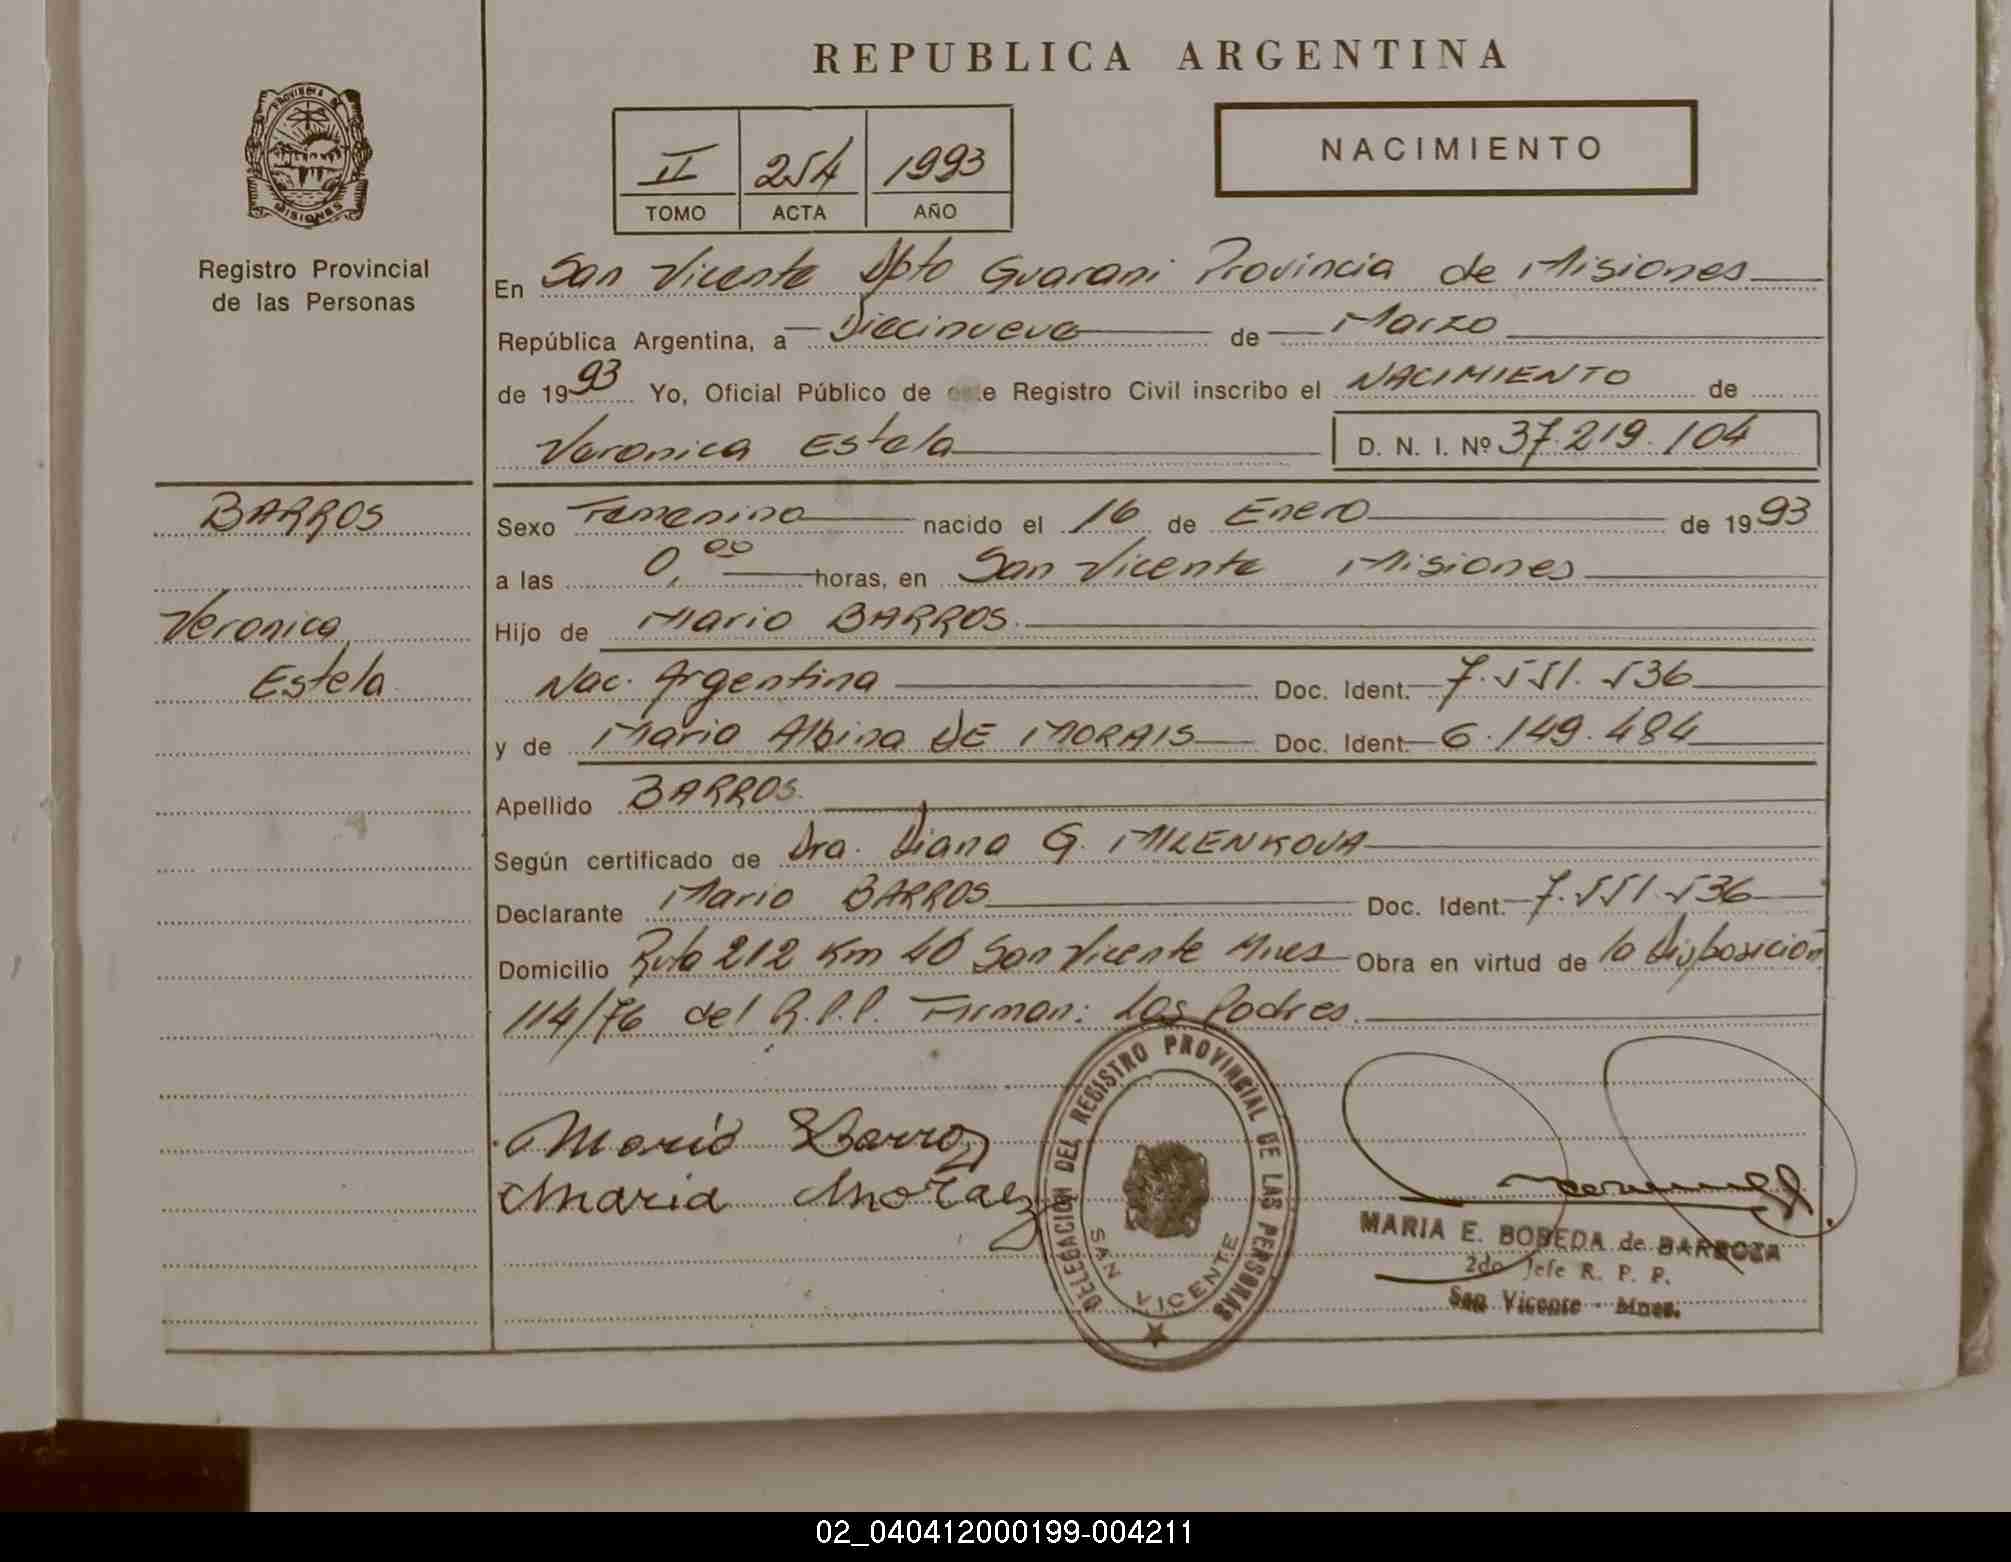 REPUBLICA ARGENTINA
PROVINCIA DE
MISIONES
Registro Provincial
de las Personas
II 254 1993
TOMO ACTA AÑO
NACIMIENTO
En San Vicente Dpto Guarani Provincia de Misiones
República Argentina, a Diecinueve de Marzo
de 1993 Yo, Oficial Público de este Registro Civil inscribo el NACIMIENTO de
Veronica Estela D. N. I. Nº 37.219.104
BARROS
Veronica
Estela
Sexo Femenino nacido el 16 de Enero de 1993
a las 0,00 horas, en San Vicente Misiones
Hijo de Mario BARROS.
Nac. Argentina Doc. Ident. 7.551.536
y de Maria Albina DE MORAIS Doc. Ident. 6.149.484
Apellido BARROS.
Según certificado de Dra. Diana G. MILENKOVA
Declarante Mario BARROS Doc. Ident. 7.551.536
Domicilio Ruta 212 Km 40 San Vicente Mnes Obra en virtud de la Disposición
114/76 del R.P.P. Firman: Los Padres.
Mario Barros
Maria Moraes
DELEGACION DEL REGISTRO PROVINCIAL DE LAS PERSONAS
SAN VICENTE
MARIA E. BOBEDA de BARBOZA
2do Jefe R. P. P.
San Vicente - Mnes.
02_040412000199-004211